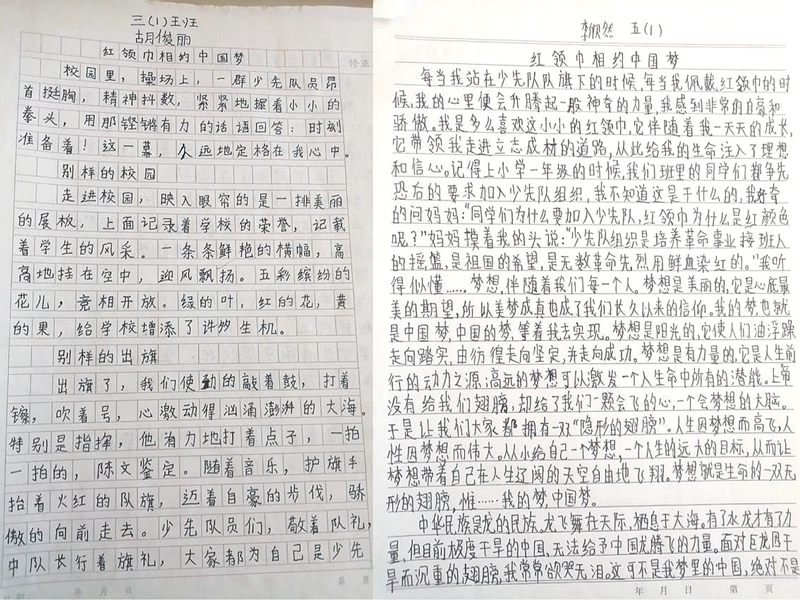 三(1)班
胡俊丽
红领巾相约中国梦
修正
校园里，操场上，一群少先队员昂
首挺胸，精神抖数，紧紧地握着小小的
拳头，用那铿锵有力的话语回答：时刻
准备着！这一幕，久远地定格在我心中。
别样的校园
走进校园，映入眼帘的是一排美丽
的展板，上面记录着学校的荣誉，记载
着学生的风采。一条条鲜艳的横幅，高
高地挂在空中，迎风飘扬。五彩缤纷的
花儿，竞相开放。绿的叶，红的花，黄
的果，给学校增添了许多生机。
别样的出旗
出旗了，我们使劲的敲着鼓，打着
镲，吹着号，心激动得汹涌澎湃的大海。
特别是指挥，他有力地打着点子，一拍
一拍的，陈文鉴定。随着音乐，护旗手
抬着火红的队旗，迈着自豪的步伐，骄
傲的向前走去。少先队员们，敬着队礼，
中队长行着旗礼，大家都为自己是少先
年 月 日 第 页
李欣然 五(1)
红领巾相约中国梦
每当我站在少先队队旗下的时候，每当我佩戴红领巾的时
候，我的心里便会升腾起一股神奇的力量，我感到非常的自豪和
骄傲。我是多么喜欢这小小的红领巾，它伴随着我一天天的成长，
它带领我走进立志成材的道路，从此给我的生命注入了理想
和信心。记得上小学一年级的时候，我们班里的同学们都争先
恐后的要求加入少先队组织，我不知道这是干什么的，我好奇
的问妈妈："同学们为什么要加入少先队，红领巾为什么是红颜色
呢？"妈妈摸着我的头说："少先队组织是培养革命事业接班人
的摇篮，是祖国的希望，是无数革命先烈用鲜血染红的。"我听
得似懂……，梦想，伴随着我们每一个人。梦想是美丽的，它是心底最
美的期望，所以美梦成真也成了我们长久以来的信仰。我的梦也就
是中国梦，中国的梦，等着我去实现。梦想是阳光的，它使人们由浮躁
走向踏实，由彷徨走向坚定，并走向成功。梦想是有力量的，它是人生前
行的动力之源；高远的梦想可以激发一个人生命中所有的潜能。上帝
没有给我们翅膀，却给了我们一颗会飞的心，一个会梦想的大脑。
于是让我们大家都拥有一双"隐形的翅膀"。人生因梦想而高飞，人
性因梦想而伟大。从小给自己一个梦想，一个人生的远大的目标，从而让
梦想带着自己在人生辽阔的天空自由地飞翔。梦想就是生命的一双无
形的翅膀，惟……我的梦，中国梦。
中华民族是龙的民族。龙飞舞在天际，栖息于大海。有了水龙才有了力
量，但目前极度干旱的中国，无法给予中国龙腾飞的力量。面对巨龙因干
旱而沉重的翅膀，我常常欲哭无泪。这可不是我梦里的中国，绝对不是
年 月 日 第 页